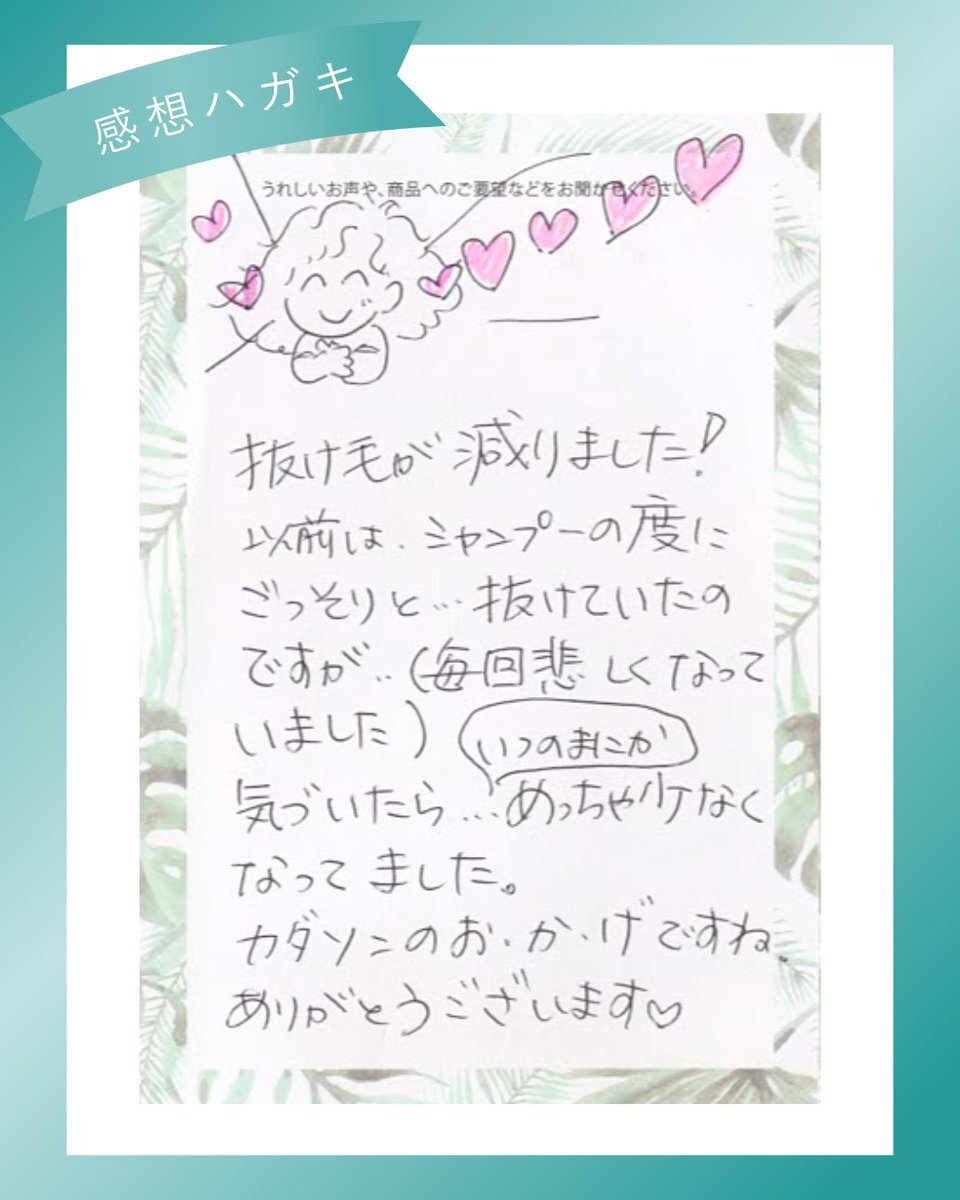 感想ハガキ
うれしいお声や、商品へのご要望などをお聞かせください。
抜け毛が減りました!
以前は、シャンプーの度に
ごっそりと…抜けていたの
ですが‥(毎回悲しくなって
いました)
いつのまにか
気づいたら…めっちゃ少なく
なってました。
カダソンのお・か・げですね、
ありがとうございます♡